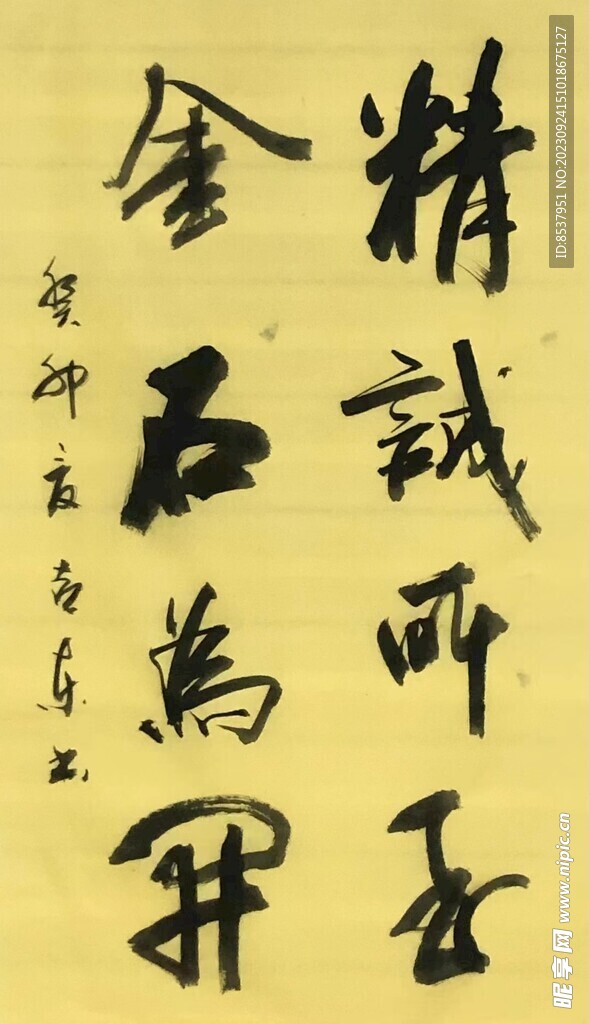 精誠所至
金石為開
癸卯夏吉東书
ID:8537951 NO:20230924151018675127
昵享网 www.nipic.cn